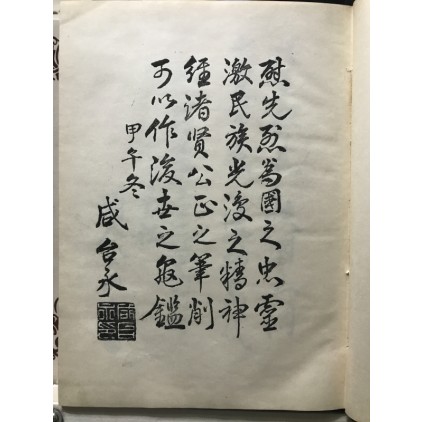 慰先烈為國之忠靈
激民族光復之精神
經諸賢公正之筆削
可以作後世之龜鑑
甲午冬
咸台永